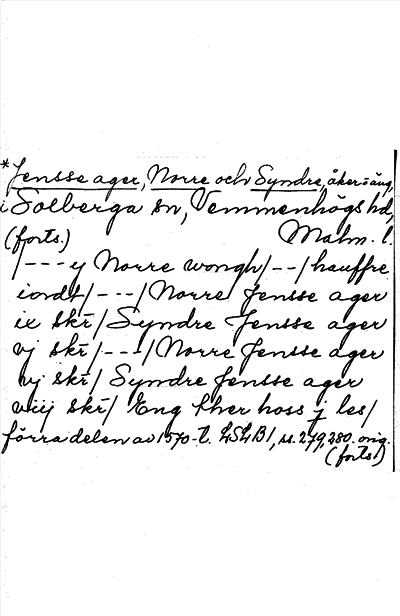 *Jensse ager, Norre och Syndre, åker o äng,
i Solberga sn, Vemmenhögs hd,
(forts.) Malm. l.
/---y Norre wongh/--/hauffre
iordt/---/Norre Jensse ager
ix skr̄/Syndre Jensse ager
vj skr̄/---/Norre Jensse ager
vj skr̄/Syndre Jensse ager
viij skr̄/Eng ther hoss j les/
förra delen av 1570-t. LSLB1, ss. 279, 280. orig.
(forts.)